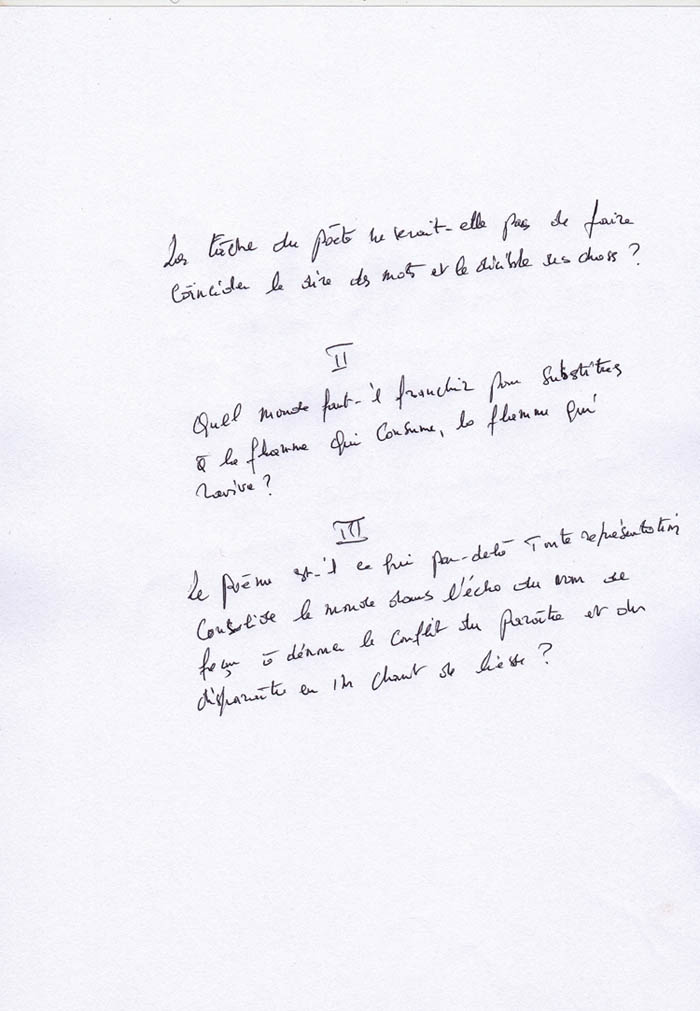 La tâche du poète ne serait-elle pas de faire
coïncider le dire des mots et le dicible des choses ?
II
Quel monde faut-il franchir pour substituer
à la flamme qui consume, la flamme qui
ravive ?
III
Le poème est-il ce qui par-delà toute représentation
consolide le monde dans l'écho du nom de
façon à dénouer le conflit du paraître et du
disparaître en un chant de liesse ?